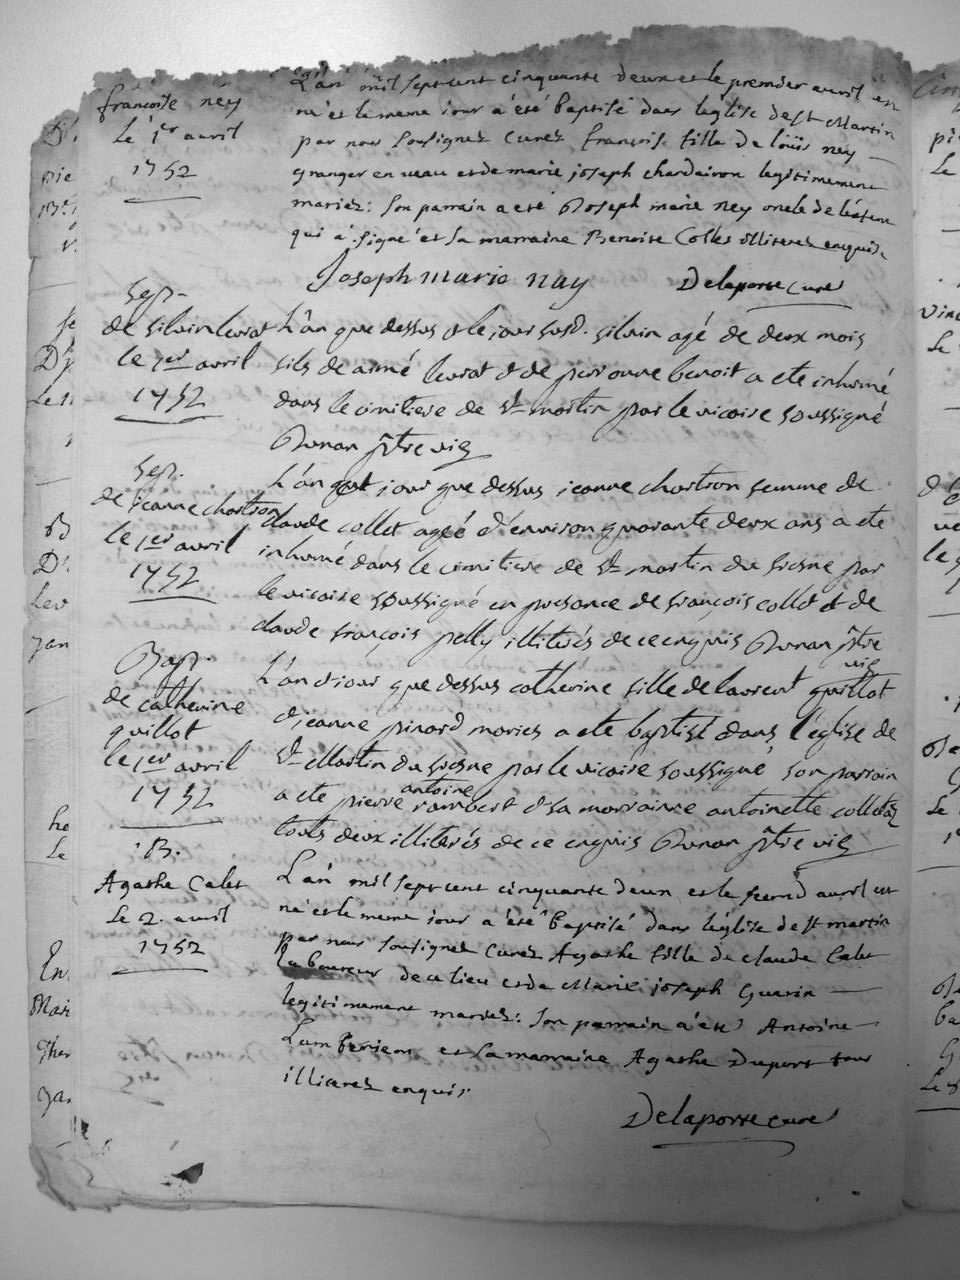 françoise ney
le 1er avril
1752
L'an mil sept cent cinquante deux et le premier avril est
né et le meme iour a été baptisé dans leglise de st Martin
par nous soussignez curez françoise fille de loüis ney
granger en veau et de marie joseph chardeiron legitimement
mariez: son parrain a eté Joseph marie ney oncle de
qui a signé et sa marraine Benoite Colles illiterez enquis
Joseph marie nay Delaporte curé
Sep.
de silvin levrat
le 1er avril
1752
L'an que dessus & le jour susd. silvin agé de deux mois
fils de aimé levrat & de perronne benoit a ete inhumé
dans le cimitiere de st martin par le vicaire soussigné
Dunan ptre vic
Sep.
de jeanne chartron
le 1er avril
1752
L'an & iour que dessus jeanne chartron femme de
claude collet agéé d'environ quarante deux ans a ete
inhumé dans le cimitiere de st martin du fresne par
le vicaire soussigné en presance de françois collet & de
claude françois pelly illiterés de ce enquis Dunan ptre
vic
Bap.
de catherine
guillot
le 1er avril
1752
L'an & iour que dessus catherine fille de laurent guillot
& jeanne pinard mariés a ete baptisé dans l'église de
st Martin du fresne par le vicaire soussigné son parrain
a ete pierre antoine rambert & sa marrainne antoinette collet
touts deux illiterés de ce enquis Dunan ptre vic
B.
Agathe Calet
Le 2. avril
1752
L'an mil sept cent cinquante deux et le second avril est
né et le meme iour a été baptisé dans léglise de st martin
par nous soussignez curez Agathe fille de claude Calet
Laboureur de ce lieu et de Marie joseph Guerin
legitimement mariez: son parrain a été Antoine
et sa marraine Agathe Duport tous
illiterez enquis
Delaporte curé